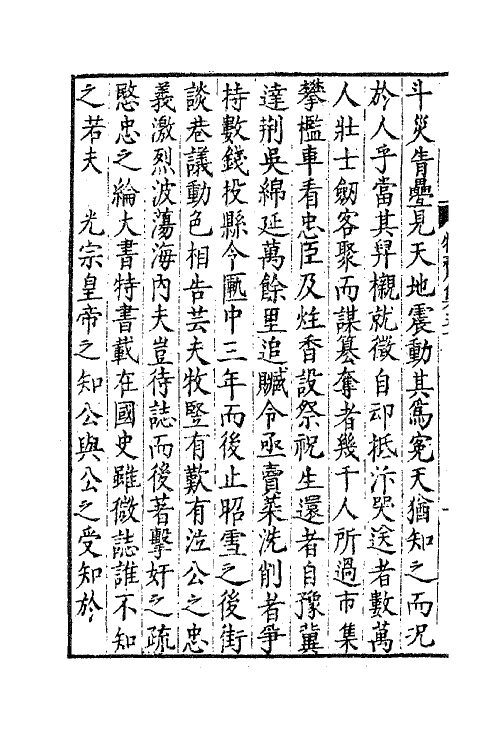 斗災眚疊見天地震動其爲寃天猶知之而况
於人乎當其舁櫬就徵自邙抵汴哭送者數萬
人壯士劒客聚而謀簒奪者幾千人所過市集
攀檻車看忠臣及炷香設祭祝生還者自豫冀
達荆吳綿延萬餘里追贓令亟賣菜洗削者爭
持數錢投縣令匭中三年而後止昭雪之後街
談巷議動色相告芸夫牧豎有歎有泣公之忠
義激烈波蕩海內夫豈待誌而後著擊奸之疏
愍忠之綸大書特書載在國史雖微誌誰不知
之若夫　光宗皇帝之知公與公之受知於